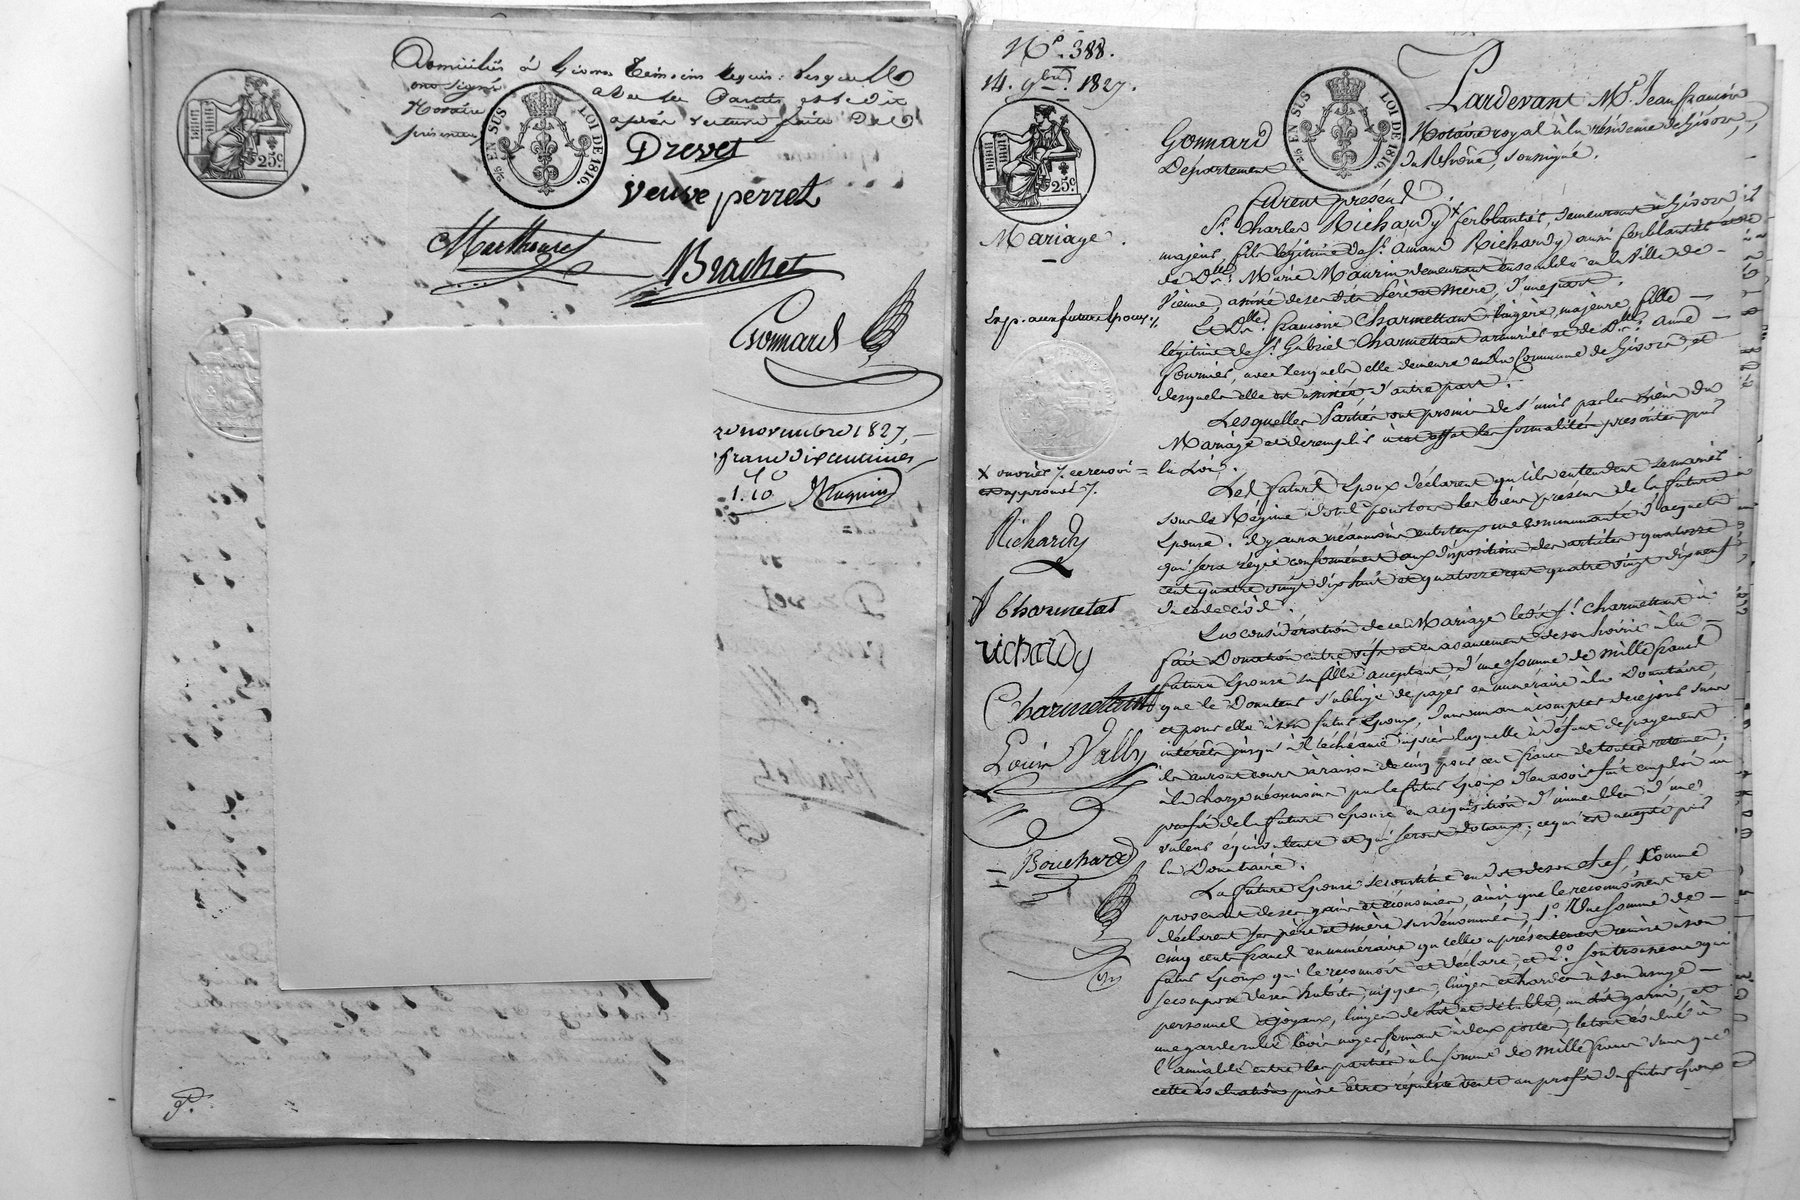 Domiciliés à Givors témoins requis, lesquels
ont signé avec les parties et le dit
Notaire après lecture faite
25 EN SUS LOI DE 1816.
25c
Drevet
veuve perret
Brachet
Gonnard
novembre 1827,
franc dix centimes
1.10
N.º 388.
14. 9bre 1827.
25c
Mariage.
25 EN SUS LOI DE 1816.
Pardevant Me. Jean françois
Gonnard Notaire royal à la résidence de Givors,
Département du Rhône, soussigné.
furent présents
Sr. Charles Richardy ferblantier, demeurant à Givors
majeur, fils légitime de Sr. Amand Richardy aussi ferblantier
de Dlle. Marie Maurin demeurant ensemble en la ville de
Vienne, assisté de ses dits Père et Mère, d'une part.
Exp. aux futurs époux
Et Dlle. françoise Charmettant lingère, majeure, fille
légitime de Sr. Gabriel Charmettant armurier et de Dme. Anne
fournier, avec lesquels elle demeure en la Commune de Givors, et
desquels elle est assistée d'autre part.
Lesquelles Parties ont promis de s'unir par les liens du
Mariage et de remplir à cet effet les formalités prescrites par
la Loi.
X ouvrier / ce renvoi
approuvé /.
Les futurs Epoux déclarent qu'ils entendent se marier
sous le Régime dotal pour tous les biens présens de la future
Epouse. il y aura néanmoins entr'eux une communauté d'acquets
qui sera régie conformément aux dispositions des articles quatorze
cent quatre vingt dix huit et quatorze cent quatre vingt dix neuf
du code civil.
Richardy
Charmetat
richardy
Charmetant
Louis Vally
Bouchard
En considération de ce Mariage le dit Sr. Charmettant a
fait Donation entre vifs et en avancement de son hoirie à la
future Epouse sa fille acceptant d'une somme de Mille francs
que le Donateur s'oblige de payer en numéraire à la Donataire
et pour elle à son futur Epoux, dans un an à compter de ce jour sans
intérêts jusqu'à l'échéance après laquelle à défaut de payement
ils auront cours à raison de cinq pour cent francs de toutes retenues;
à la charge néanmoins par le futur Epoux d'en avoir fait emploi au
profit de la future épouse en acquisition d'immeubles d'une
valeur équivalente et qui seront dotaux; ce qui est accepté par
la Donataire.
La future Epouse se constitue en dot de son chef, comme
provenant de ses gains et économies, ainsi que le reconnoissent et
déclarent ses père et mère susdénommés, 1º. Une somme de
cinq cents francs en numéraire qu'elle a présentement remise à son
futur Epoux qui le reconnoit et déclare, et 2º. son trousseau qui
se compose de ses habits, nippes, linges et hardes à son usage
personnel et joyaux, linges de lit et de table, un lit garni, et
une garderobe bois noyer fermant à deux portes, le tout évalué à
l'amiable entre les parties à la somme de Mille francs sans que
cette évaluation puisse être réputée vente au profit du futur Epoux